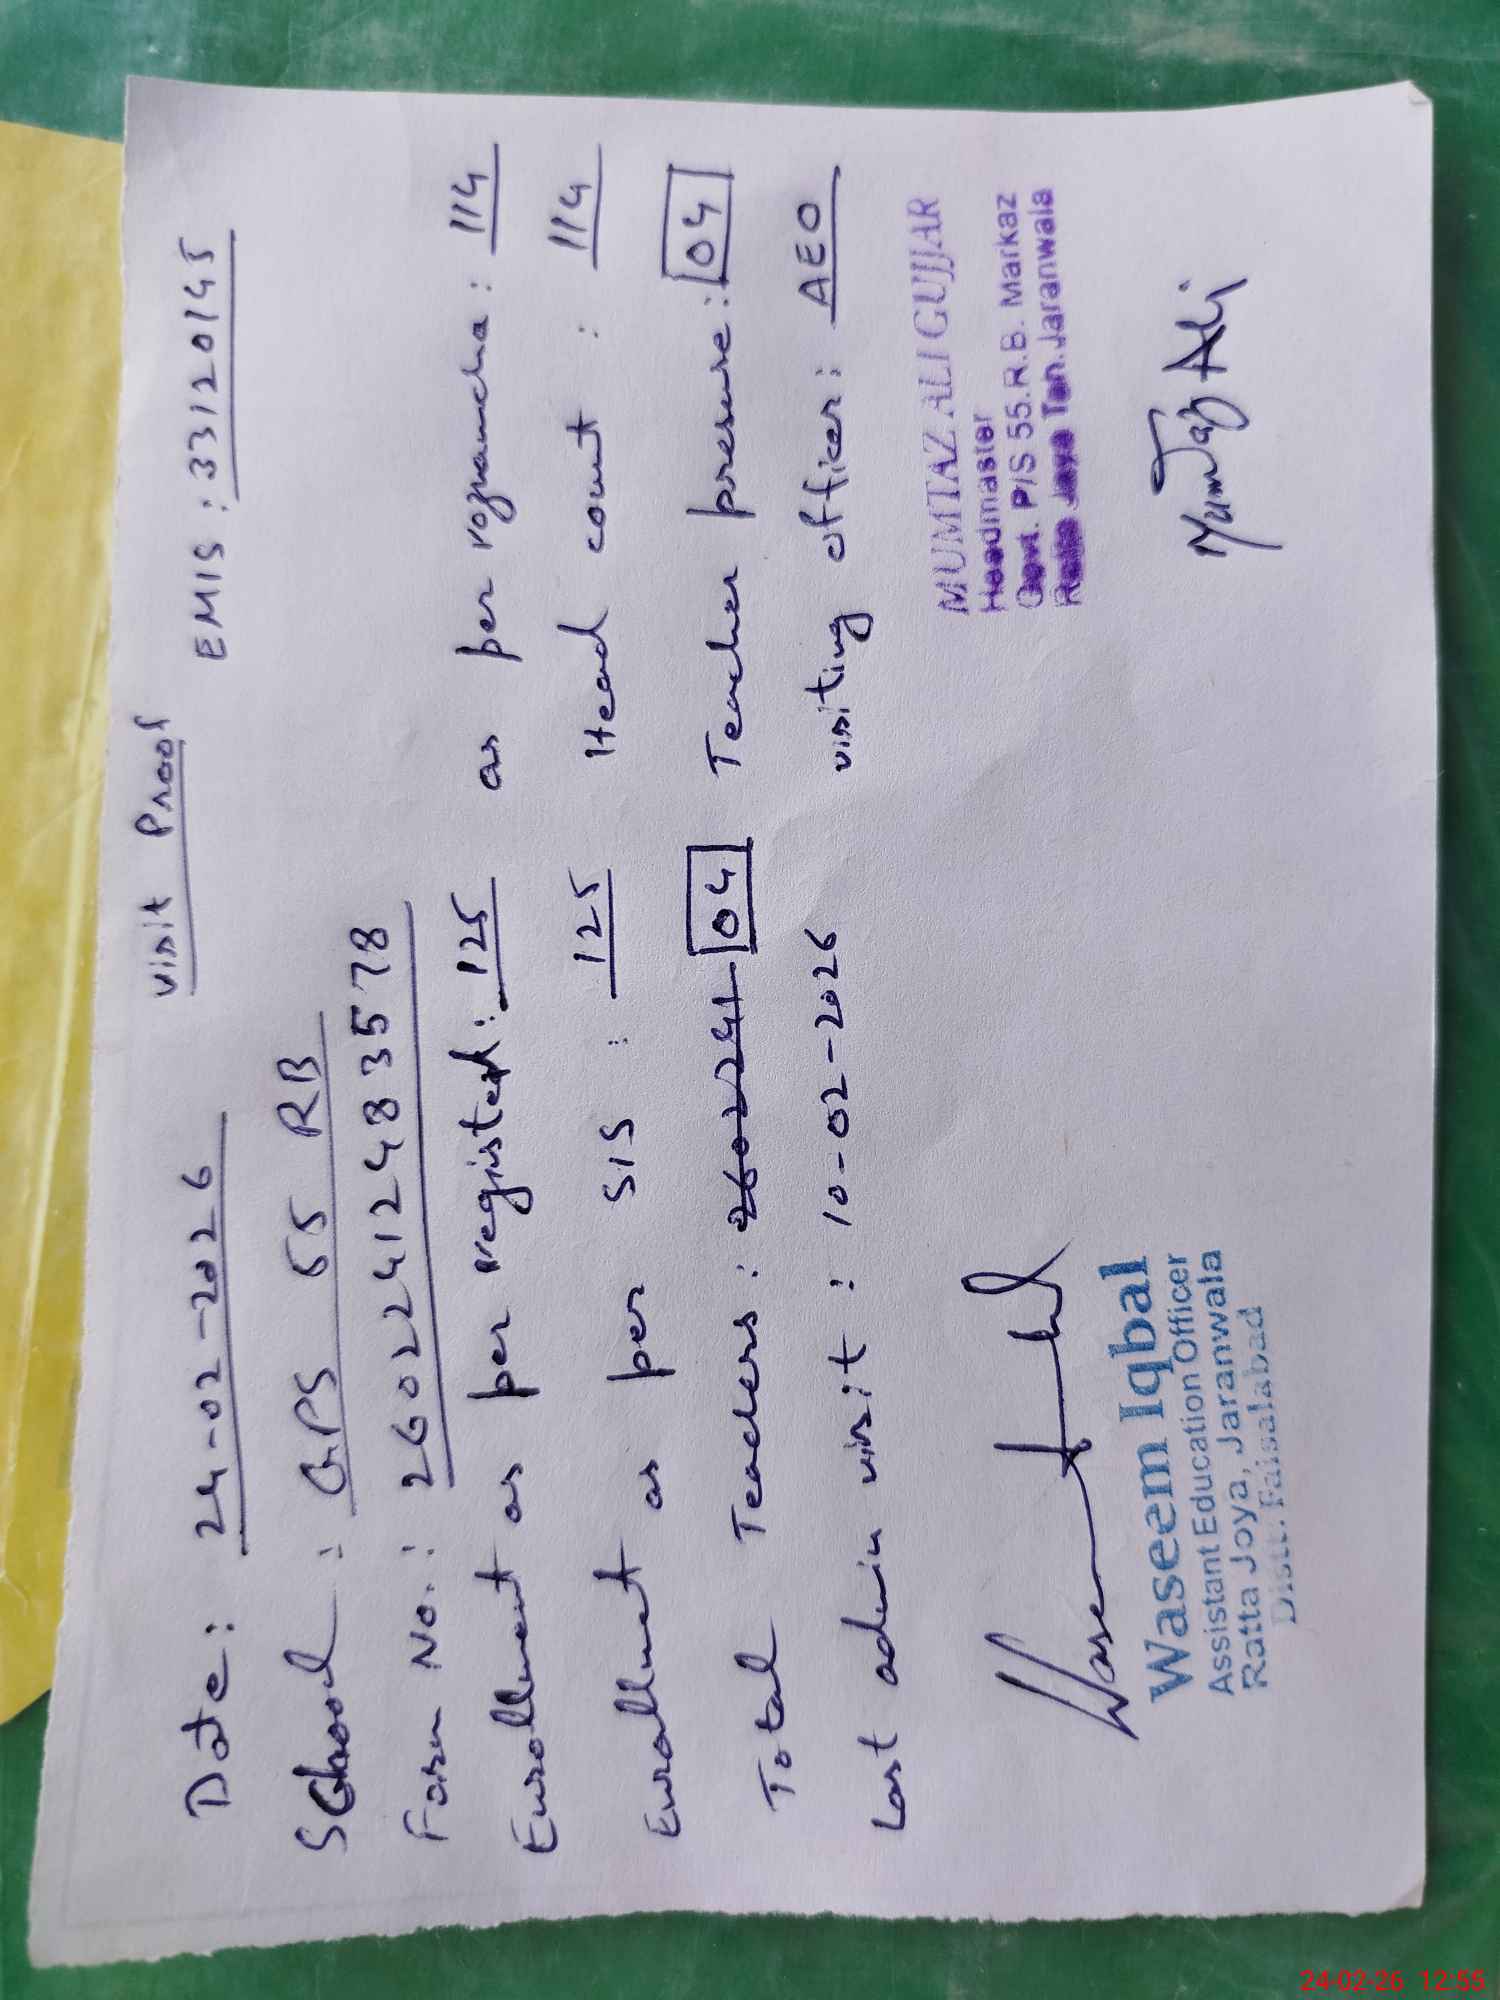 visit Proof
Date: 24-02-2026 EMIS: 33120145
School: GPS 55 RB
Form No.: 26022412483578
Enrollment as per register: 125 as per rognamcha: 114
Enrollment as per SIS: 125 Head count: 114
Total Teachers: 2602241 04 Teacher presene: 04
Last admin visit: 10-02-2026 visiting officer: AEO
MUMTAZ ALI GUJJAR
Headmaster
Govt. P/S 55.R.B. Markaz
Ratta Jaya Teh. Jaranwala
Mumtaz Ali
Waseem
Waseem Iqbal
Assistant Education Officer
Ratta Joya, Jaranwala
Distt. Faisalabad
24-02-26 12:55